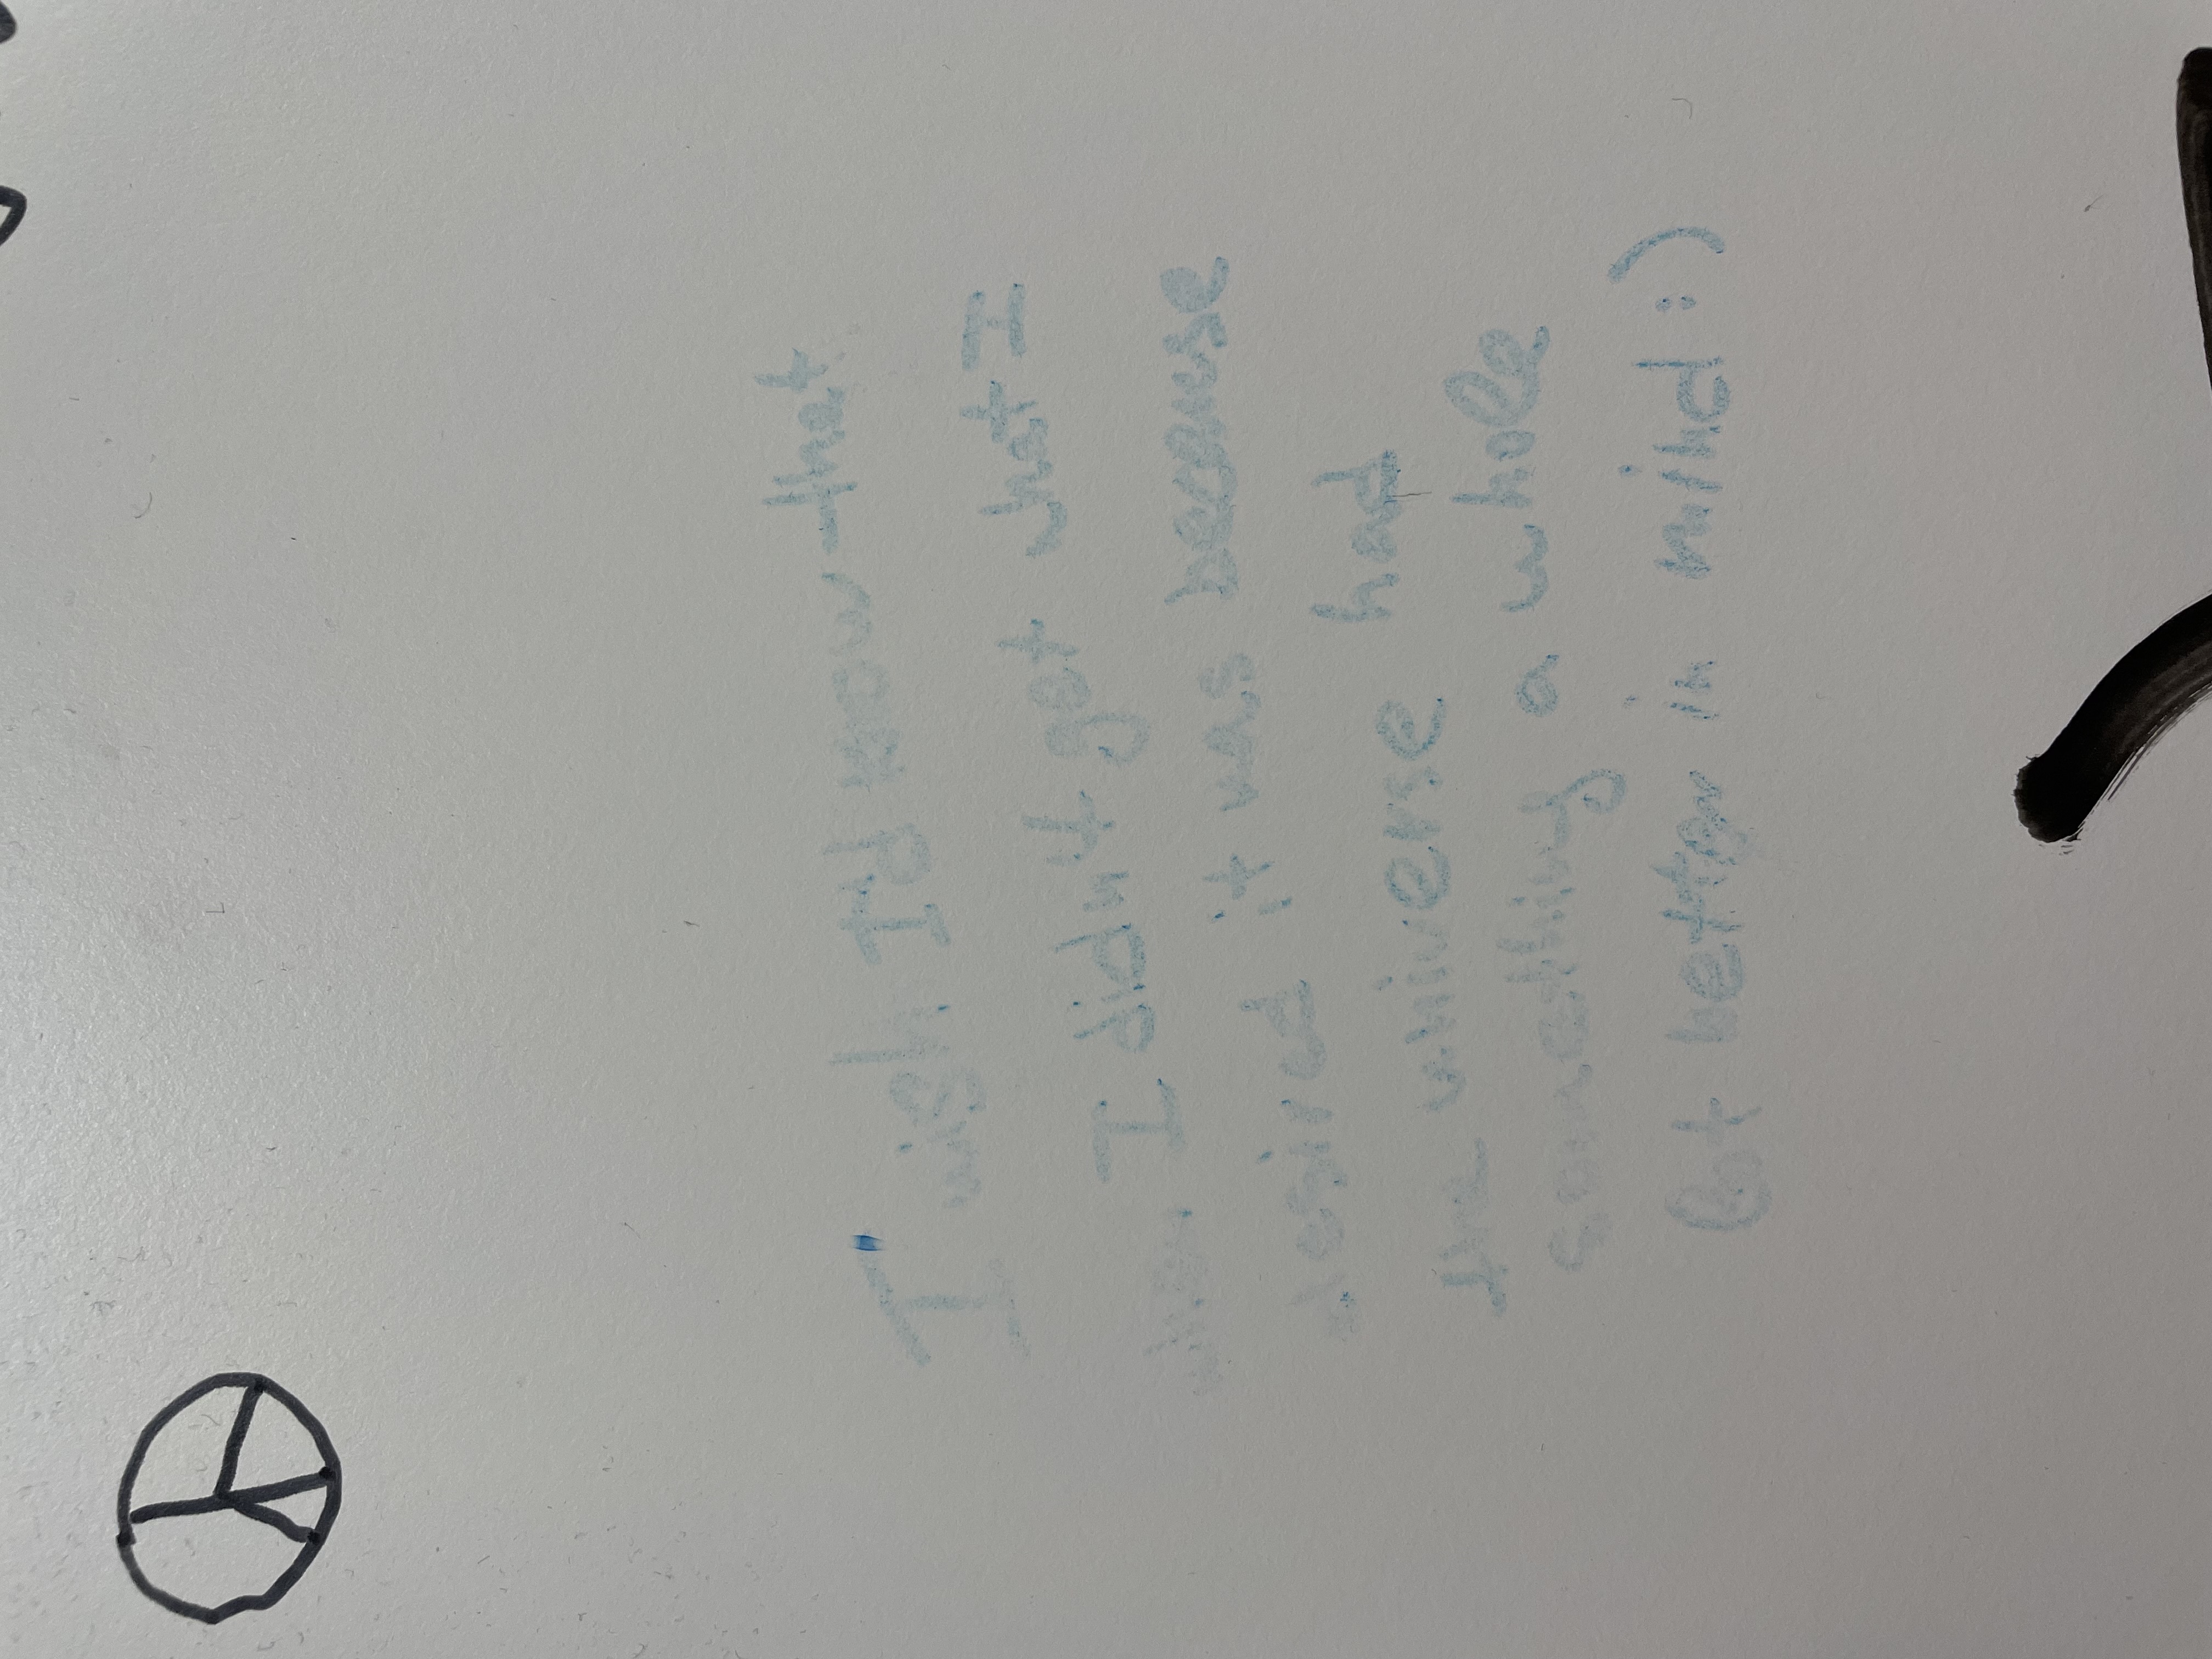 I wish I'd know that
when I didn't get what I
desired it was because
the universe had
something a whole
lot better in mind :)